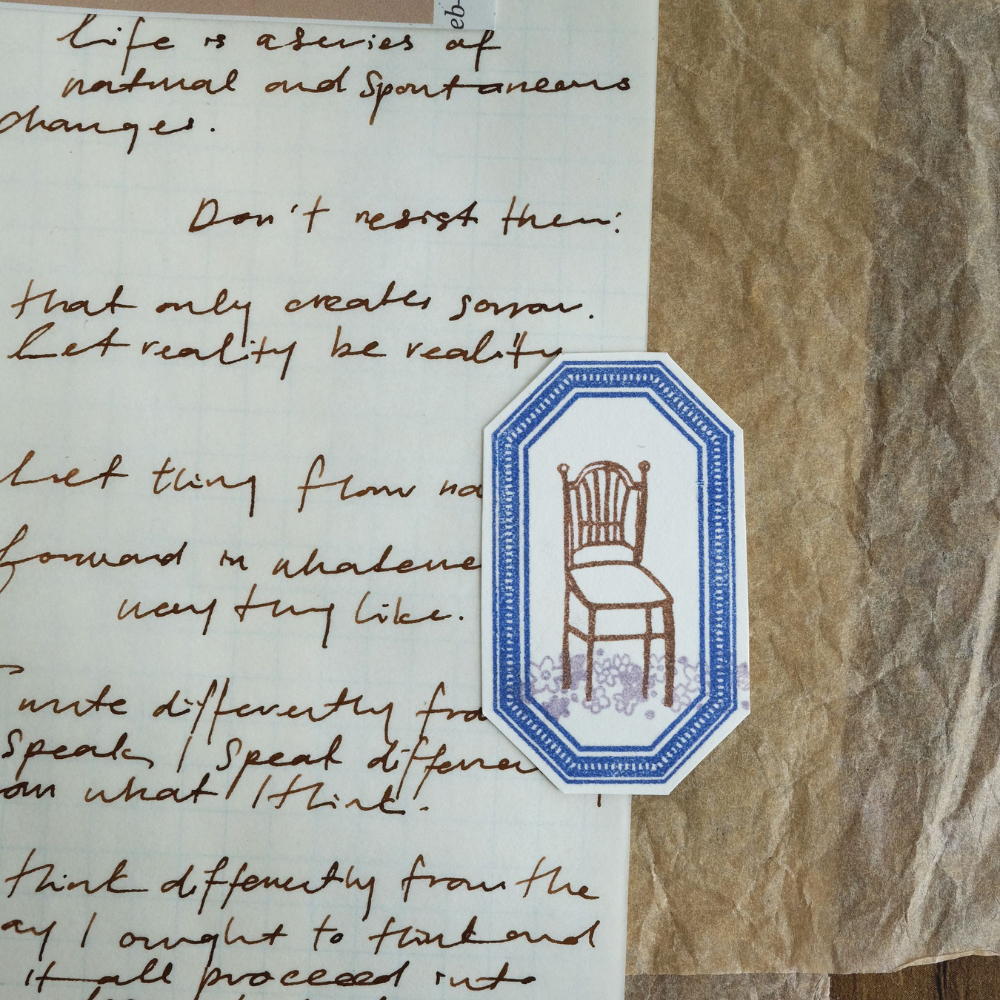 eb-
Life is a series of
natural and spontaneous
changes.
Don't resist them:
that only creates sorrow.
Let reality be reality
Let thing flow na
forward in whateve
way they like.
write differently fro
speak, I speak differen
om what I think.
think differently from the
ay I ought to think and
it all proceed into